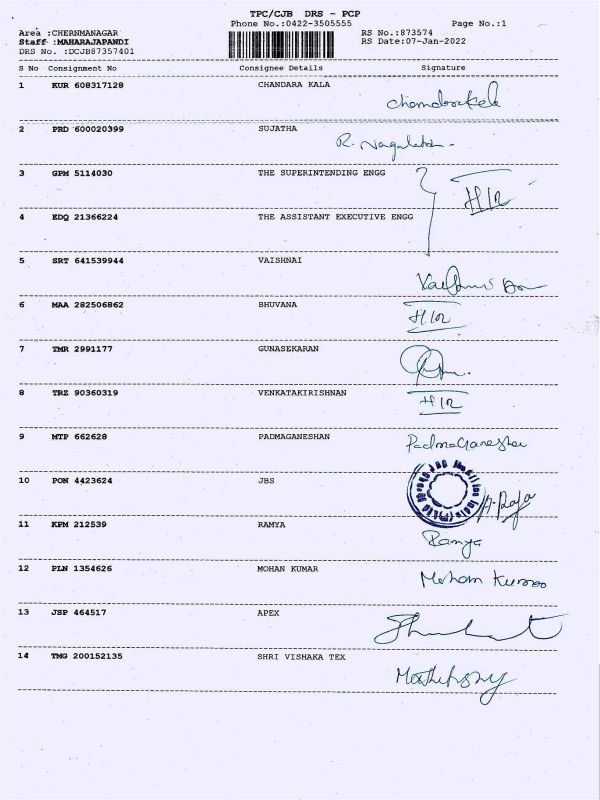 TPC/CJB DRS - PCP
Phone No.:0422-3505555 Page No.:1
Area :CHERNMANAGAR RS No.:873574
Staff :MAHARAJAPANDI RS Date:07-Jan-2022
DRS No. :DCJB87357401
S No Consignment No Consignee Details Signature
1 KUR 608317128 CHANDARA KALA
Chandrakala
2 PRD 600020399 SUJATHA
R. Nagalakshmi
3 GPM 5114030 THE SUPERINTENDING ENGG
H/R
4 EDQ 21366224 THE ASSISTANT EXECUTIVE ENGG
5 SRT 641539944 VAISHNAI
6 MAA 282506862 BHUVANA
H/R
7 TMR 2991177 GUNASEKARAN
8 TRZ 90360319 VENKATAKIRISHNAN
H/R
9 MTP 662628 PADMAGANESHAN
Padmaganeshan
10 PON 4423624 JBS
A. Raja
11 KPM 212539 RAMYA
Ramya
12 PLN 1354626 MOHAN KUMAR
Mohan Kumar
13 JSP 464517 APEX
14 TMG 200152135 SHRI VISHAKA TEX